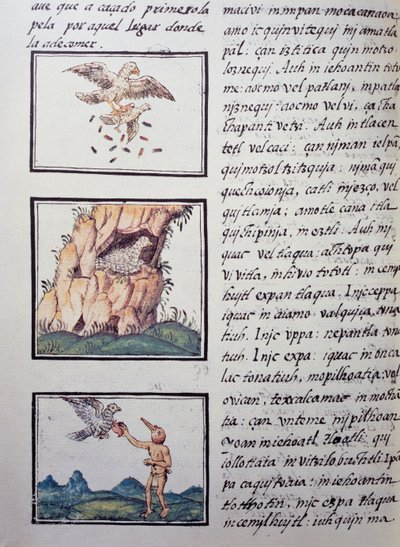 aue que a caçado primero la
pela por aquel lugar donde
la ade comer.
macivi in impan mocacanaoa:
amo ic quinvitequi yn jamatla
pal: çan iztitica quin motzo
loznequj. Auh in iehoantin toto
me: aocmo vel patlanj, in patla
njznequj: aocmo vel vi, ça cha
chapantivetzi. Auh intlacen
tetl vel caci: çan njman ielpã,
quimotzoltzitzquja: njmã quj
quechcoionja, catli injezço, vel
qujtlamja; amotle cana tla
qujchipinja, in eztli. Auh inj
quac vel tlaqua: achtopa quj
vivitla, in hivio tototl: in cemj
lhuitl expan tlaqua. Injc ceppa
iquac in aiamo valquiça, tona
tiuh. Injc vppa: nepantla tona
tiuh. Injc expa: iquac in onca
lac tonatiuh, mopilhoatia, vel
ovican, texcalcamac in mochã
tia: çan vnteme injpilhoan
Yoan in iehoatl tlotli, qui
iollotiaia in vitzilobuchtli: Ipã
pa ca quitoaia: in iehoantin
tlothotin, injc expa tlaqua
in cemjlhujtl: iuhqujn ma